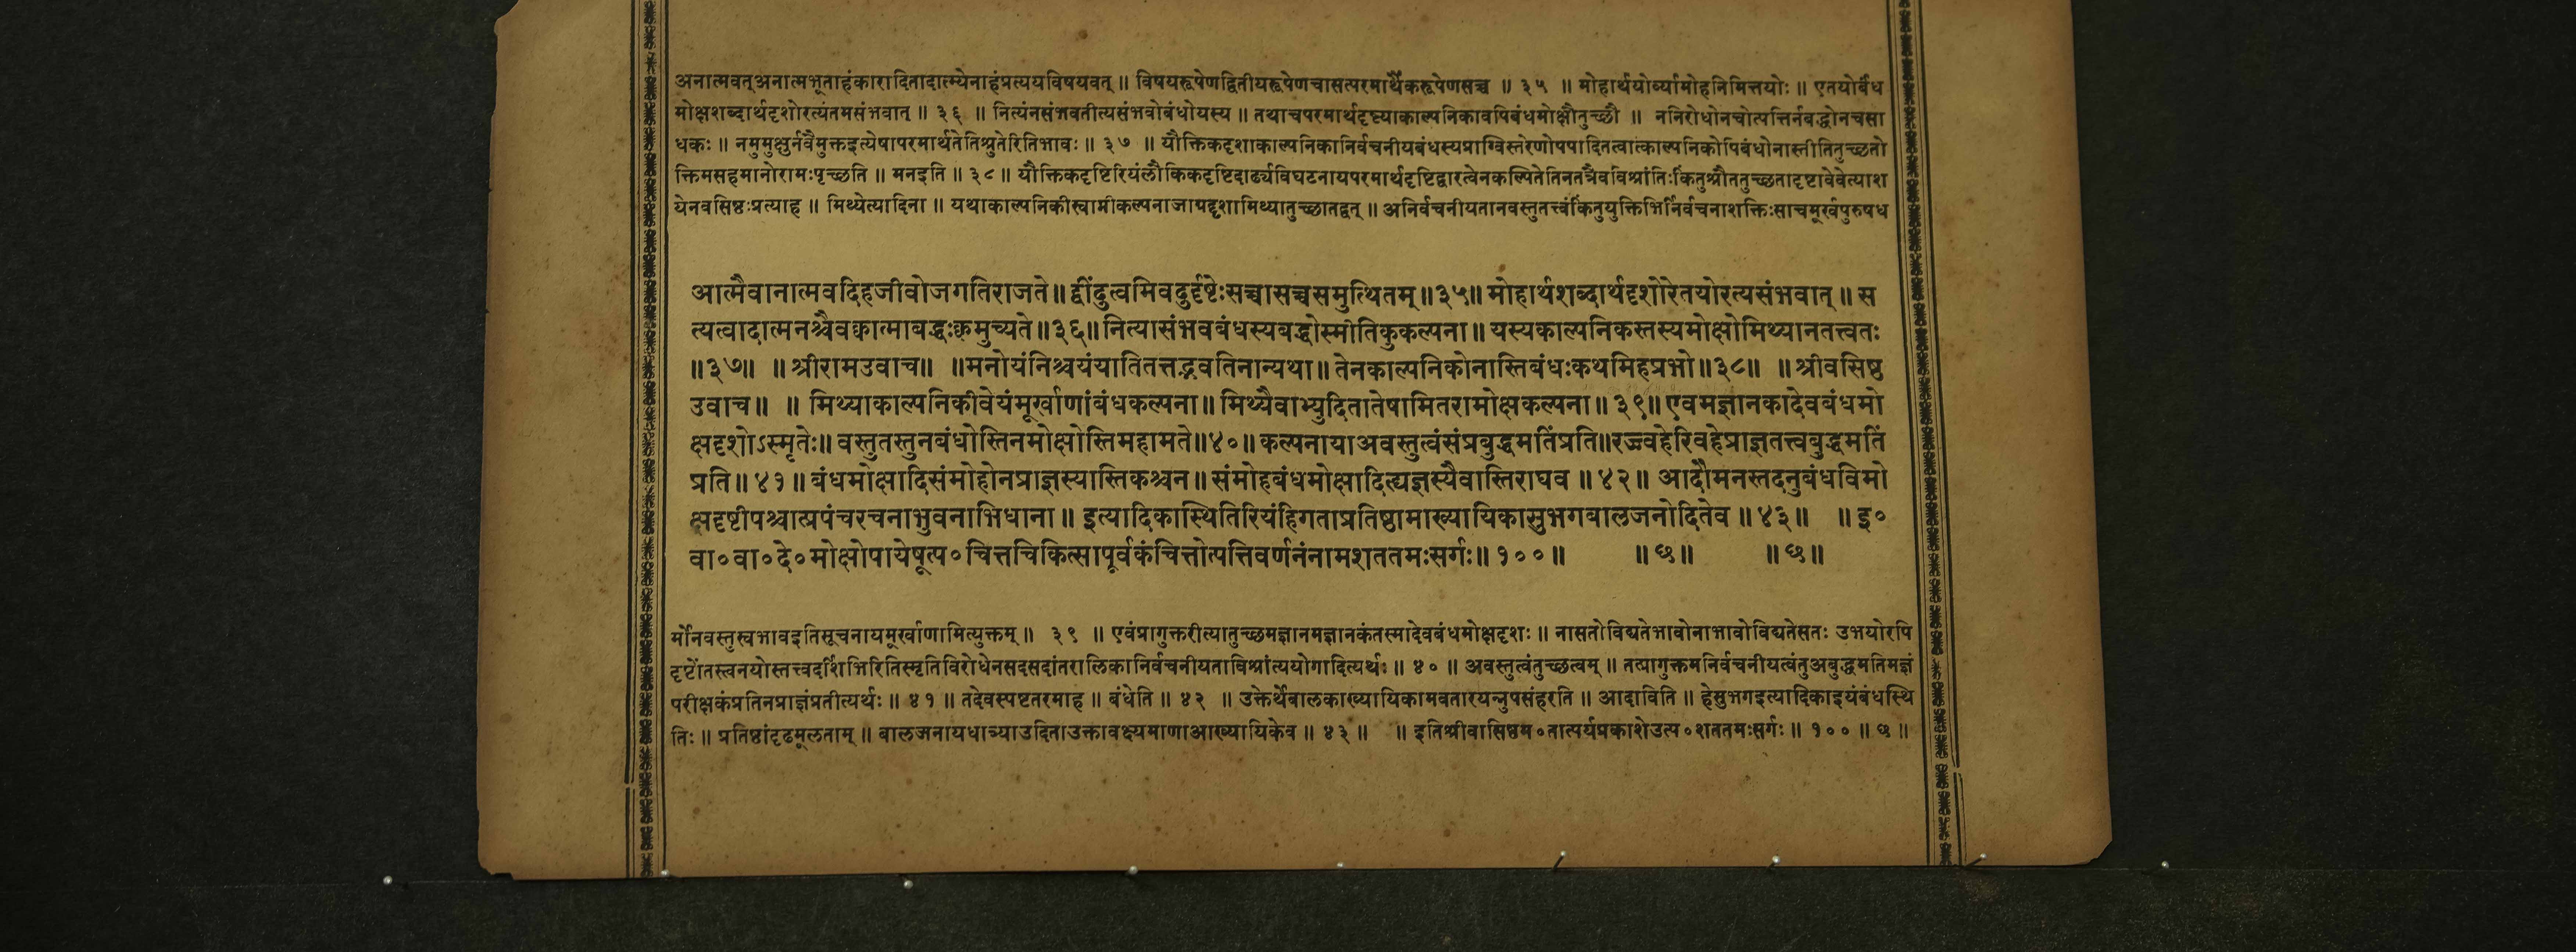 अनात्मवत्अनात्मभूताहंकारादितादात्म्येनाहंप्रत्ययविषयवत् ॥ विषयरूपेणद्वितीयरूपेणचासत्परमार्थैकरूपेणसच्च ॥ ३५ ॥ मोहार्थयोर्व्यामोहनिमित्तयोः ॥ एतयोर्बंध
मोक्षशब्दार्थदृशोरत्यंतमसंभवात् ॥ ३६ ॥ नित्यंनसंभवतीत्यसंभवोबंधोयस्य ॥ तथाचपरमार्थदृष्ट्याकाल्पनिकावपिबंधमोक्षौतुच्छौ ॥ ननिरोधोनचोत्पत्तिर्नबद्धोनचसा
धकः ॥ नमुमुक्षुर्नवैमुक्तइत्येषापरमार्थतेतिश्रुतेरितिभावः ॥ ३७ ॥ यौक्तिकदृशाकाल्पनिकानिर्वचनीयबंधस्यप्राग्विस्तरेणोपपादितत्वात्काल्पनिकोपिबंधोनास्तीतितुच्छतो
क्तिमसहमानोरामःपृच्छति ॥ मनइति ॥ ३८ ॥ यौक्तिकदृष्टिरियंलौकिकदृष्टिदार्ढ्यविघटनायपरमार्थदृष्टिद्वारत्वेनकल्पितेतिनतत्रैवविश्रांतिःकिंतुश्रौततुच्छतादृष्टावेवेत्याश
येनवसिष्ठःप्रत्याह ॥ मिथ्येत्यादिना ॥ यथाकाल्पनिकीस्वाप्नीकल्पनाजाग्रद्दृशामिथ्यातुच्छातद्वत् ॥ अनिर्वचनीयतानवस्तुतत्त्वंकिंतुयुक्तिभिर्निर्वचनाशक्तिःसाचमूर्खपुरुषध
आत्मैवानात्मवदिहजीवोजगतिराजते॥ द्वींदुत्वमिवदुर्दृष्टेःसच्चासच्चसमुत्थितम्॥३५॥ मोहार्थशब्दार्थदृशोरेतयोरत्यसंभवात्॥ स
त्यत्वादात्मनश्चैवक्वात्माबद्धःक्वमुच्यते॥३६॥ नित्यासंभवबंधस्यबद्धोस्मीतिकुकल्पना॥ यस्यकाल्पनिकस्तस्यमोक्षोमिथ्यानतत्त्वतः
॥३७॥ ॥ श्रीरामउवाच॥ ॥मनोयंनिश्चयंयातितत्तद्भवतिनान्यथा॥ तेनकाल्पनिकोनास्तिबंधःकथमिहप्रभो॥३८॥ ॥ श्रीवसिष्ठ
उवाच॥ ॥ मिथ्याकाल्पनिकीवेयंमूर्खाणांबंधकल्पना॥ मिथ्यैवाभ्युदितातेषामितरामोक्षकल्पना॥ ३९॥ एवमज्ञानकादेवबंधमो
क्षदृशोऽस्मृतेः॥ वस्तुतस्तुनबंधोस्तिनमोक्षोस्तिमहामते॥४०॥ कल्पनायाअवस्तुत्वंसंप्रबुद्धमतिंप्रति॥रज्ज्वहेरिवहेप्राज्ञतत्त्वबुद्धमतिं
प्रति॥ ४१ ॥ बंधमोक्षादिसंमोहोनप्राज्ञस्यास्तिकश्चन॥ संमोहबंधमोक्षादित्द्यज्ञस्यैवास्तिराघव ॥ ४२॥ आदौमनस्तदनुबंधविमो
क्षदृष्टीपश्चात्प्रपंचरचनाभुवनाभिधाना॥ इत्यादिकास्थितिरियंहिगताप्रतिष्ठामाख्यायिकासुभगबालजनोदितेव॥ ४३॥ ॥ इ॰
वा॰वा॰दे॰मोक्षोपायेषूत्प॰चित्तचिकित्सापूर्वकंचित्तोत्पत्तिवर्णनंनामशततमःसर्गः॥ १००॥ ॥ छ॥ ॥ छ॥
र्मोनवस्तुस्वभावइतिसूचनायमूर्खाणामित्युक्तम् ॥ ३९ ॥ एवंप्रागुक्तरीत्यातुच्छमज्ञानमज्ञानकंतस्मादेवबंधमोक्षदृशः ॥ नासतोविद्यतेभावोनाभावोविद्यतेसतः उभयोरपि
दृष्टोंतस्त्वनयोस्तत्त्वदर्शिभिरितिस्मृतिविरोधेनसदसदांतरालिकानिर्वचनीयताविश्रांत्ययोगादित्यर्थः ॥ ४० ॥ अवस्तुत्वंतुच्छत्वम् ॥ तत्प्रागुक्तमनिर्वचनीयत्वंतुअबुद्धमतिमज्ञं
परीक्षकंप्रतिनप्राज्ञंप्रतीत्यर्थः ॥ ४१ ॥ तदेवस्पष्टतरमाह ॥ बंधेति ॥ ४२ ॥ उक्तेर्थेबालकाख्यायिकामवतारयन्नुपसंहरति ॥ आदाविति ॥ हेसुभगइत्यादिकाइयंबंधस्थि
तिः ॥ प्रतिष्ठांदृढमूलताम् ॥ बालजनायधात्र्याउदिताउक्तावक्ष्यमाणाआख्यायिकेव ॥ ४३ ॥ ॥ इतिश्रीवासिष्ठम॰तात्पर्यप्रकाशेउत्प॰शततमःसर्गः ॥ १०० ॥ छ ॥